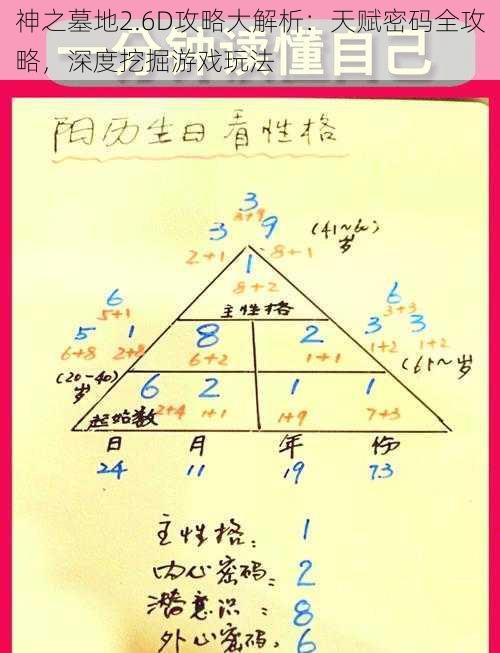 神之墓地2.6D攻略大解析：天赋密码全攻
略，深度挖掘游戏玩法
一分钟读懂自己
阳历生日看性格
3
3+9
3 9
(41~60)
岁
2+1 8+1
1
8+2
主性格
6
5+1
6
3+3
5 1
8 2
3 3
6+8 2+8
6+2 1+1
1+2 1+2
(20-40)
岁
(61~岁
6 2 1 1
2+4 1+1 1+9 7+3
起始数
日 月 年 份
24 11 19 73
主性格: 1
内心密码: 2
潜意识: 8
外心密码: 6